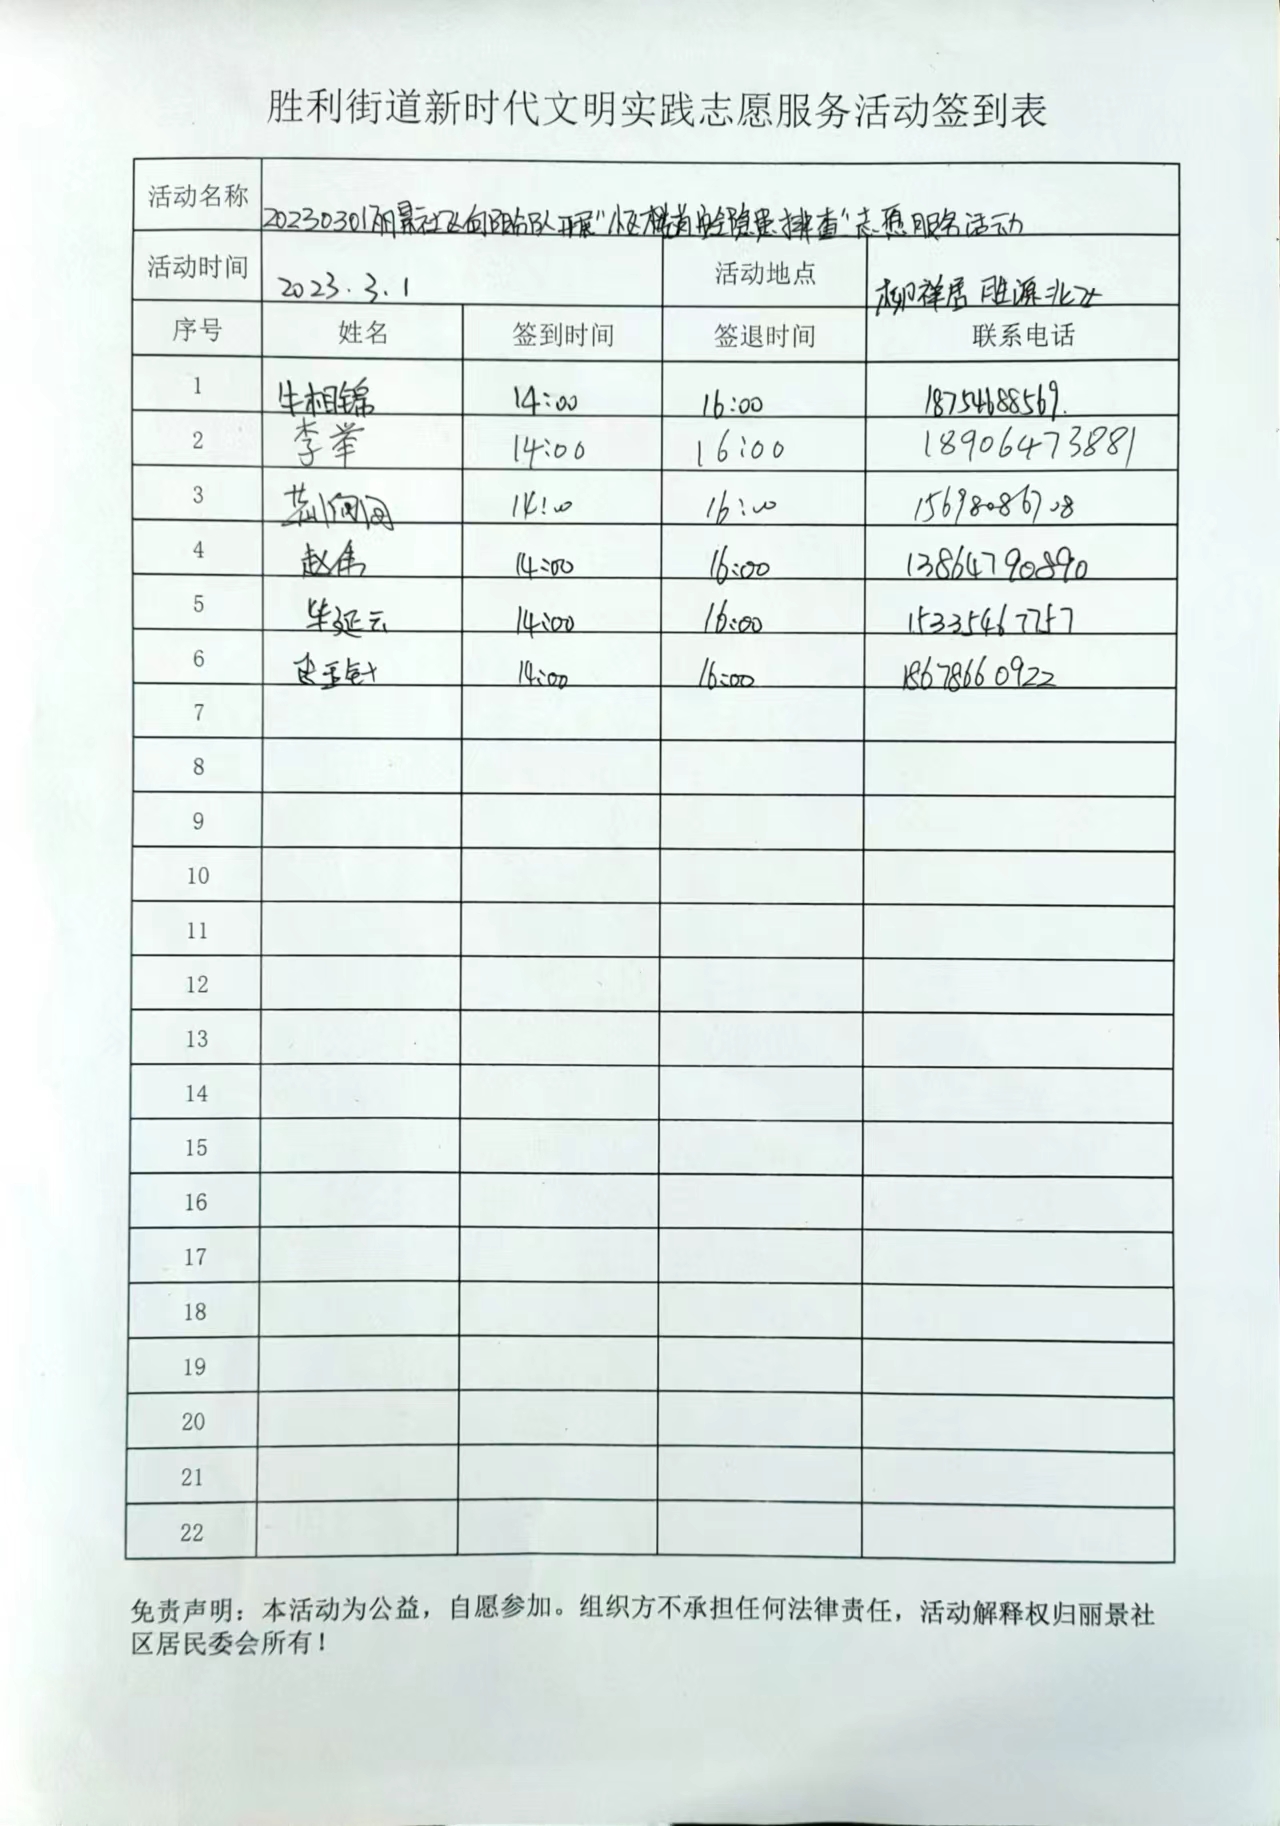 胜利街道新时代文明实践志愿服务活动签到表
活动名称 20230301丽景社区向阳分队开展“小区楼道安全隐患排查”志愿服务活动
活动时间 2023.3.1 活动地点 柳祥居 胜源北社
序号 姓名 签到时间 签退时间 联系电话
1 牛相锦 14:00 16:00 18754688569.
2 李举 14:00 16:00 18906473881
3 14:00 16:00 15698086708
4 赵伟 14:00 16:00 13864790890
5 毕延云 14:00 16:00 15335467757
6 14:00 16:00 18678660922
7
8
9
10
11
12
13
14
15
16
17
18
19
20
21
22
免责声明：本活动为公益，自愿参加。组织方不承担任何法律责任，活动解释权归丽景社
区居民委会所有！